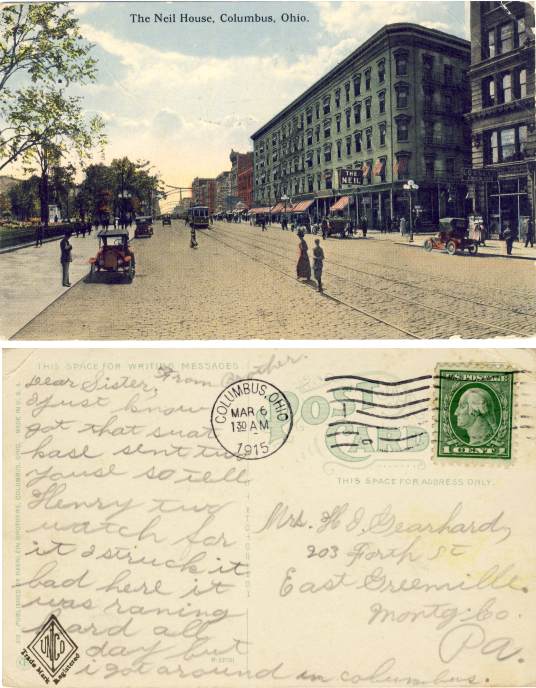 The Neil House, Columbus, Ohio.
THE
NEIL
THIS SPACE FOR WRITING MESSAGES
From Brother.
Dear Sister,
I just know
got that suat
kase sent two
youse so tell
Henry two
watch for
it I struck it
bad here it
was raning
hard all
day but
i got around in columbus.
COLUMBUS, OHIO
MAR 6
130 AM
1915
POST
CARD
U.S. POSTAGE
1 CENT 1
THIS SPACE FOR ADDRESS ONLY.
Mrs. H. D. Gearhard,
203 Forth St
East Greenville.
Montg. Co.
Pa.
UNCO
Trade Mark
Registered